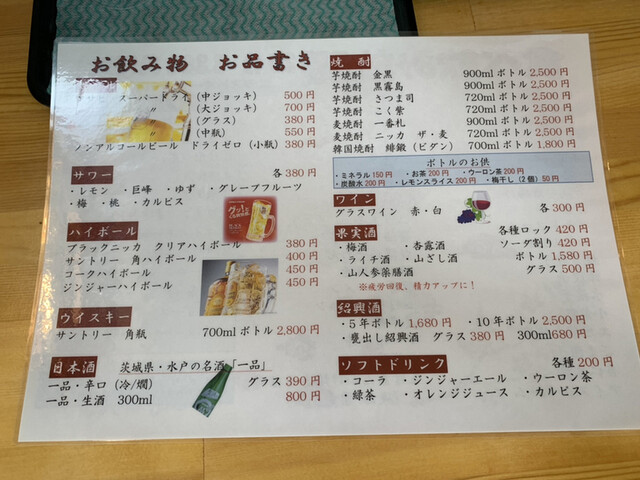 お飲み物 お品書き
スーパードライ (中ジョッキ) 500円
〃 (大ジョッキ) 700円
〃 (グラス) 380円
(中瓶) 550円
ノンアルコールビール ドライゼロ (小瓶) 380円
サワー 各380円
・レモン ・巨峰 ・ゆず ・グレープフルーツ
・梅 ・桃 ・カルピス
ハイボール
ブラックニッカ クリアハイボール 380円
サントリー 角ハイボール 400円
コークハイボール 450円
ジンジャーハイボール 450円
ウイスキー
サントリー 角瓶 700mlボトル 2,800円
日本酒 茨城県・水戸の名酒「一品」
一品・辛口 (冷/燗) グラス 390円
一品・生酒 300ml 800円
焼酎
芋焼酎 金黒 900mlボトル 2,500円
芋焼酎 黒霧島 900mlボトル 2,500円
芋焼酎 さつま司 720mlボトル 2,500円
芋焼酎 こく紫 720mlボトル 2,500円
麦焼酎 一番札 900mlボトル 2,500円
麦焼酎 ニッカ ザ・麦 720mlボトル 2,500円
韓国焼酎 緋鍛 (ピダン) 700mlボトル 1,800円
ボトルのお供
・ミネラル 150円 ・お茶 200円 ・ウーロン茶 200円
・炭酸水 200円 ・レモンスライス 200円 ・梅干し (2個) 50円
ワイン
グラスワイン 赤・白 各300円
果実酒 各種ロック 420円
・梅酒 ・杏露酒 ソーダ割り 420円
・ライチ酒 ・山ざし酒 ボトル 1,580円
・山人参薬膳酒 グラス 500円
※疲労回復、精力アップに!
紹興酒
・5年ボトル 1,680円 ・10年ボトル 2,500円
・甕出し紹興酒 グラス 380円 300ml680円
ソフトドリンク 各種 200円
・コーラ ・ジンジャーエール ・ウーロン茶
・緑茶 ・オレンジジュース ・カルピス